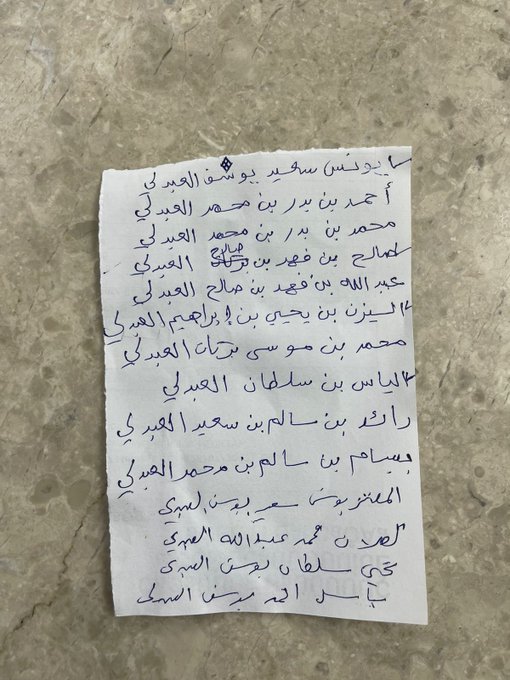 يونس سعيد يوسف العبدلي
أحمد بن بدر بن محمد العبدلي
محمد بن بدر بن محمد العبدلي
صالح بن فهد بن صالح العبدلي
عبد الله بن فهد بن صالح العبدلي
بن يحيي بن إبراهيم العبدلي
محمد بن موسى بركات العبدلي
الياس بن سلطان العبدلي
رائد بن سالم بن سعيد العبدلي
بسام بن سالم بن محمد العبدلي
المعتز يونس سعيد يوسف العبدلي
محمد عبدالله العبدلي
يحي سلطان يوسف العبدلي
ياسر احمد يوسف العبدلي